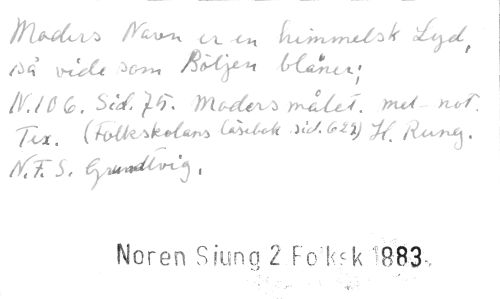 Moders Navn er en himmelsk Lyd,
så vide som Böljen blåner;
N.106. Sid. 75. Modersmålet. mel. not.
Tex. (Folkskolans läsebok sid. 622) H. Rung.
N.F.S. Grundtvig.
Noren Sjung 2 Folksk 1883.